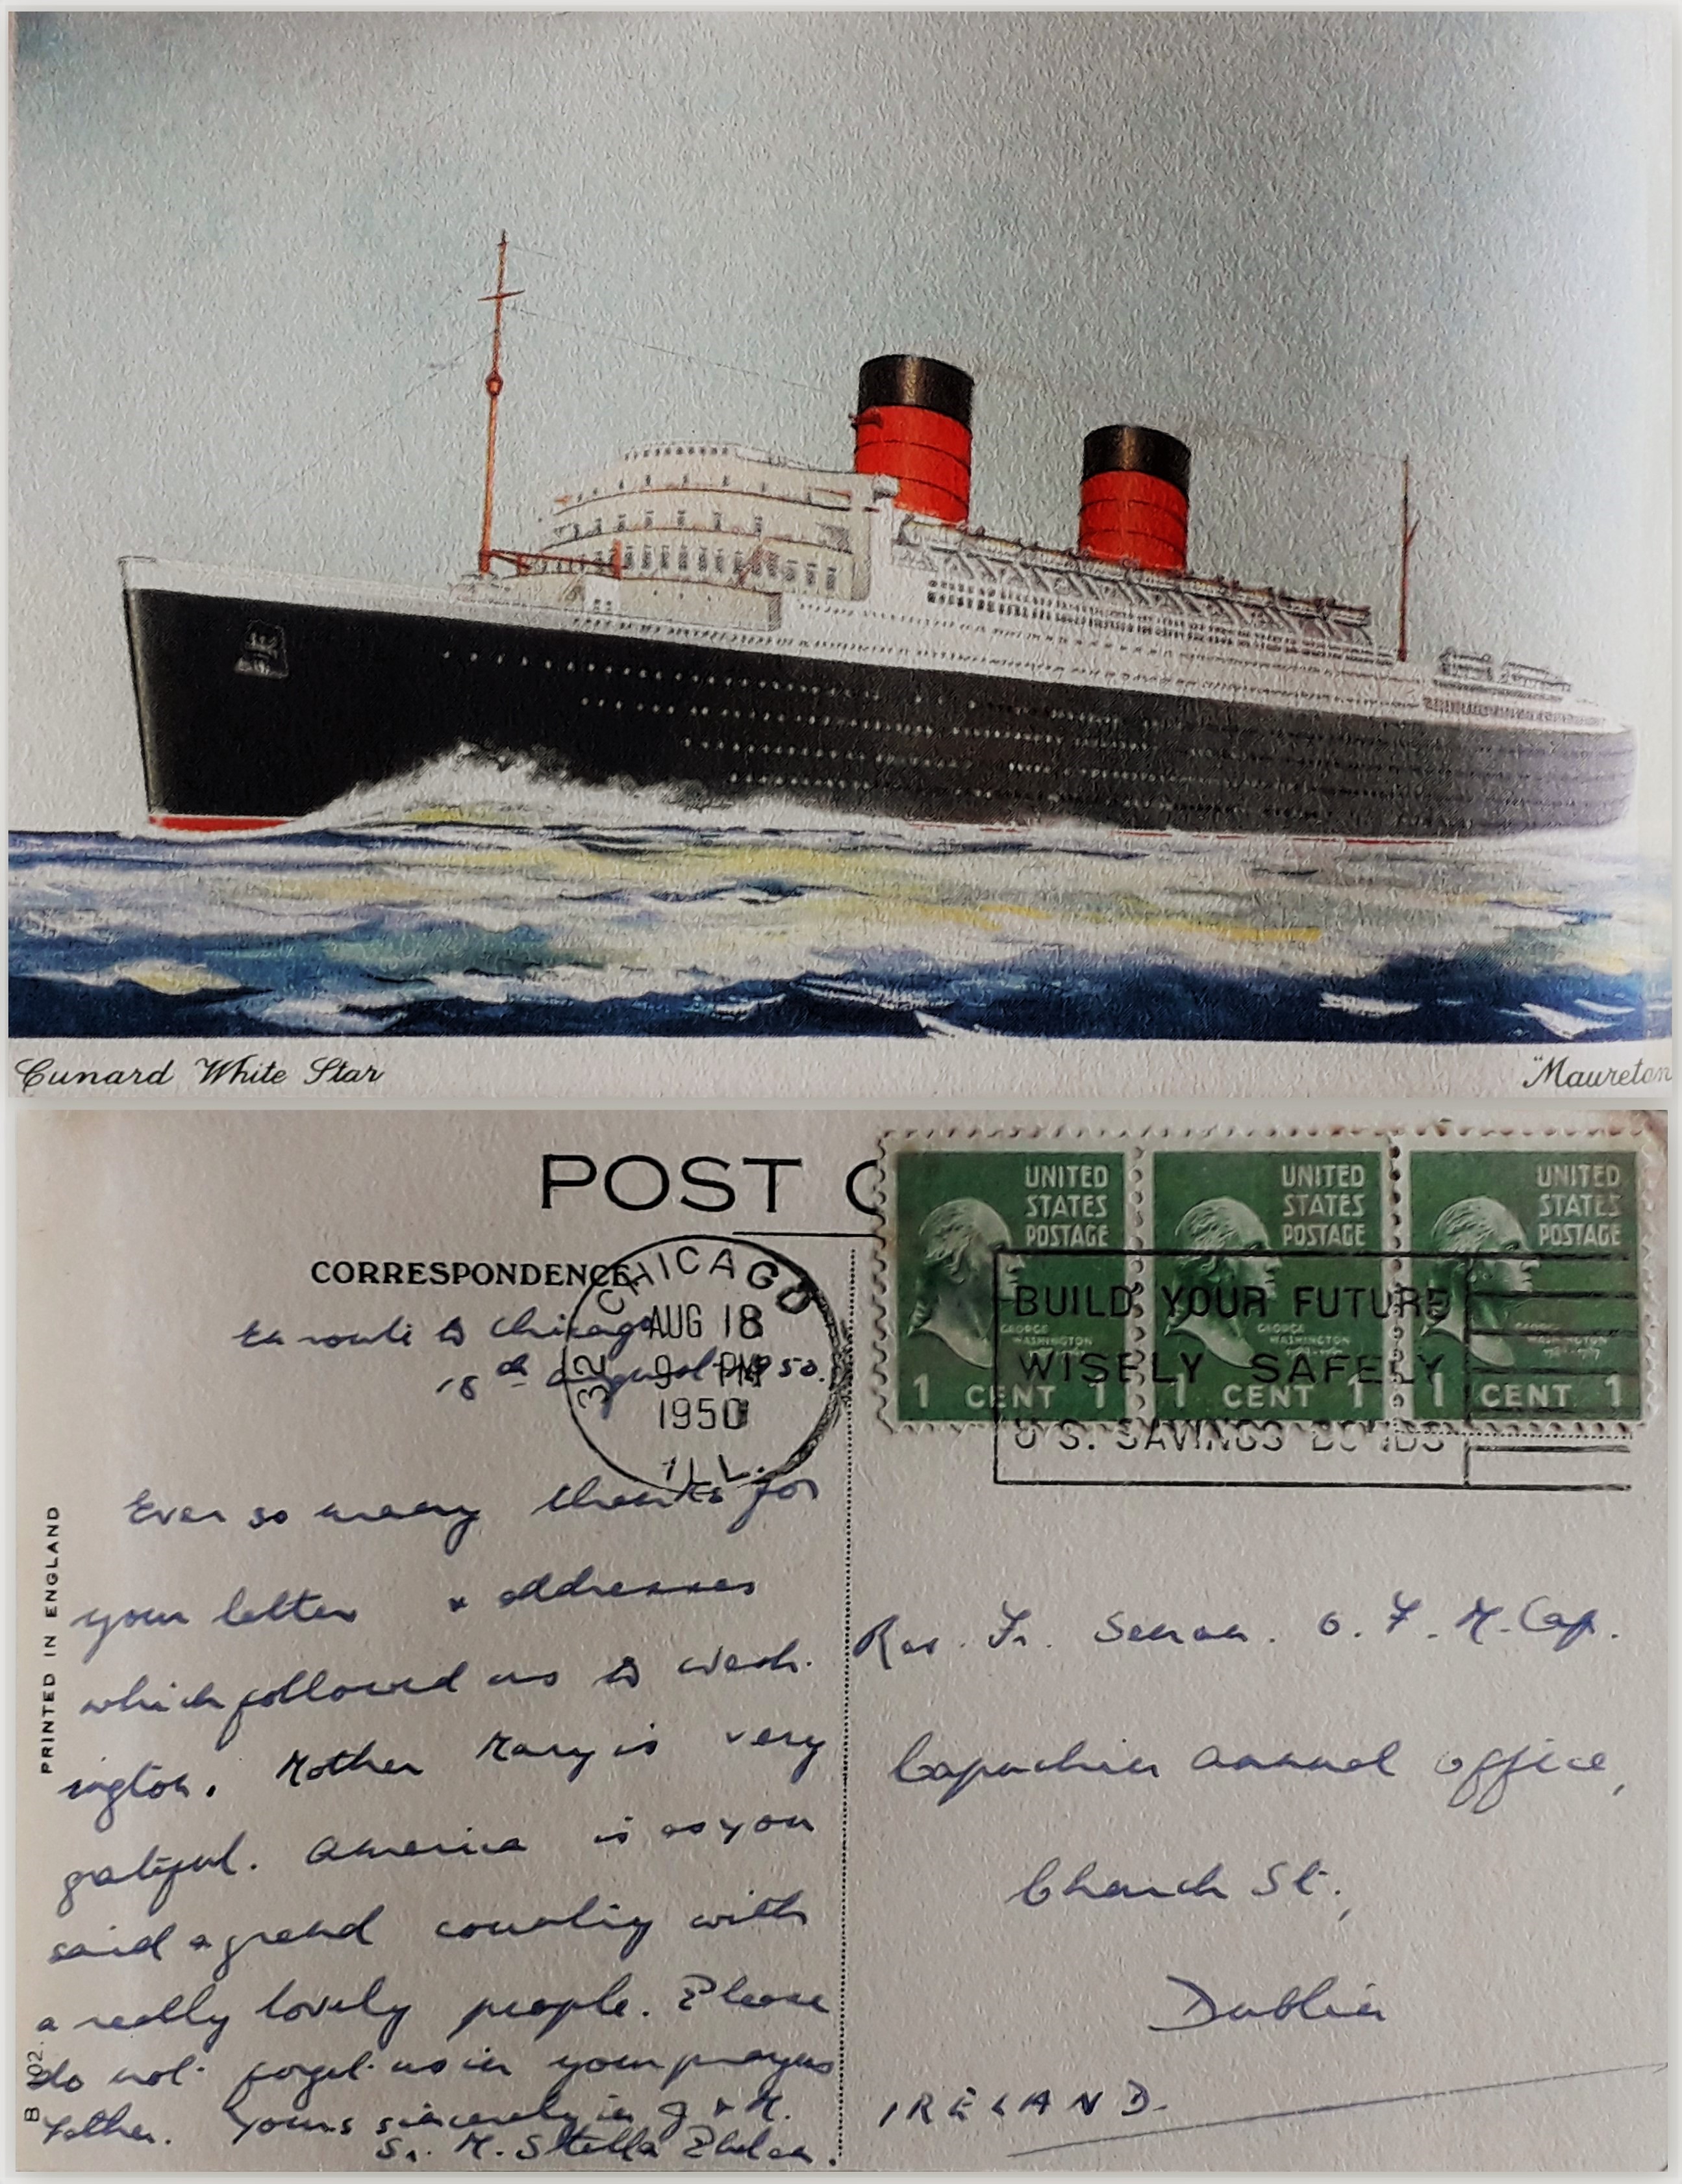 Cunard White Star
"Mauretan
POST C
CORRESPONDENCE
UNITED STATES POSTAGE
GEORGE WASHINGTON
1 CENT 1
UNITED STATES POSTAGE
GEORGE WASHINGTON
1 CENT 1
UNITED STATES POSTAGE
GEORGE WASHINGTON
1 CENT 1
CHICAGO
32
AUG 18
9 PM
1950
ILL.
BUILD YOUR FUTURE
WISELY SAFELY
U.S. SAVINGS BONDS
En route to Chicago
18th August 1950.
Ever so many thanks for
your letter & addresses
which followed us to Wash-
ington. Mother Mary is very
grateful. America is as you
said a grand country with
a really lovely people. Please
do not forget us in your prayers
Father. Yours sincerely in J & M.
Sr. M. Stella Phelan.
PRINTED IN ENGLAND
B 02.
Rev. Fr. Senan. O.F.M.Cap.
Capuchin Annual Office,
Church St.,
Dublin
IRELAND.